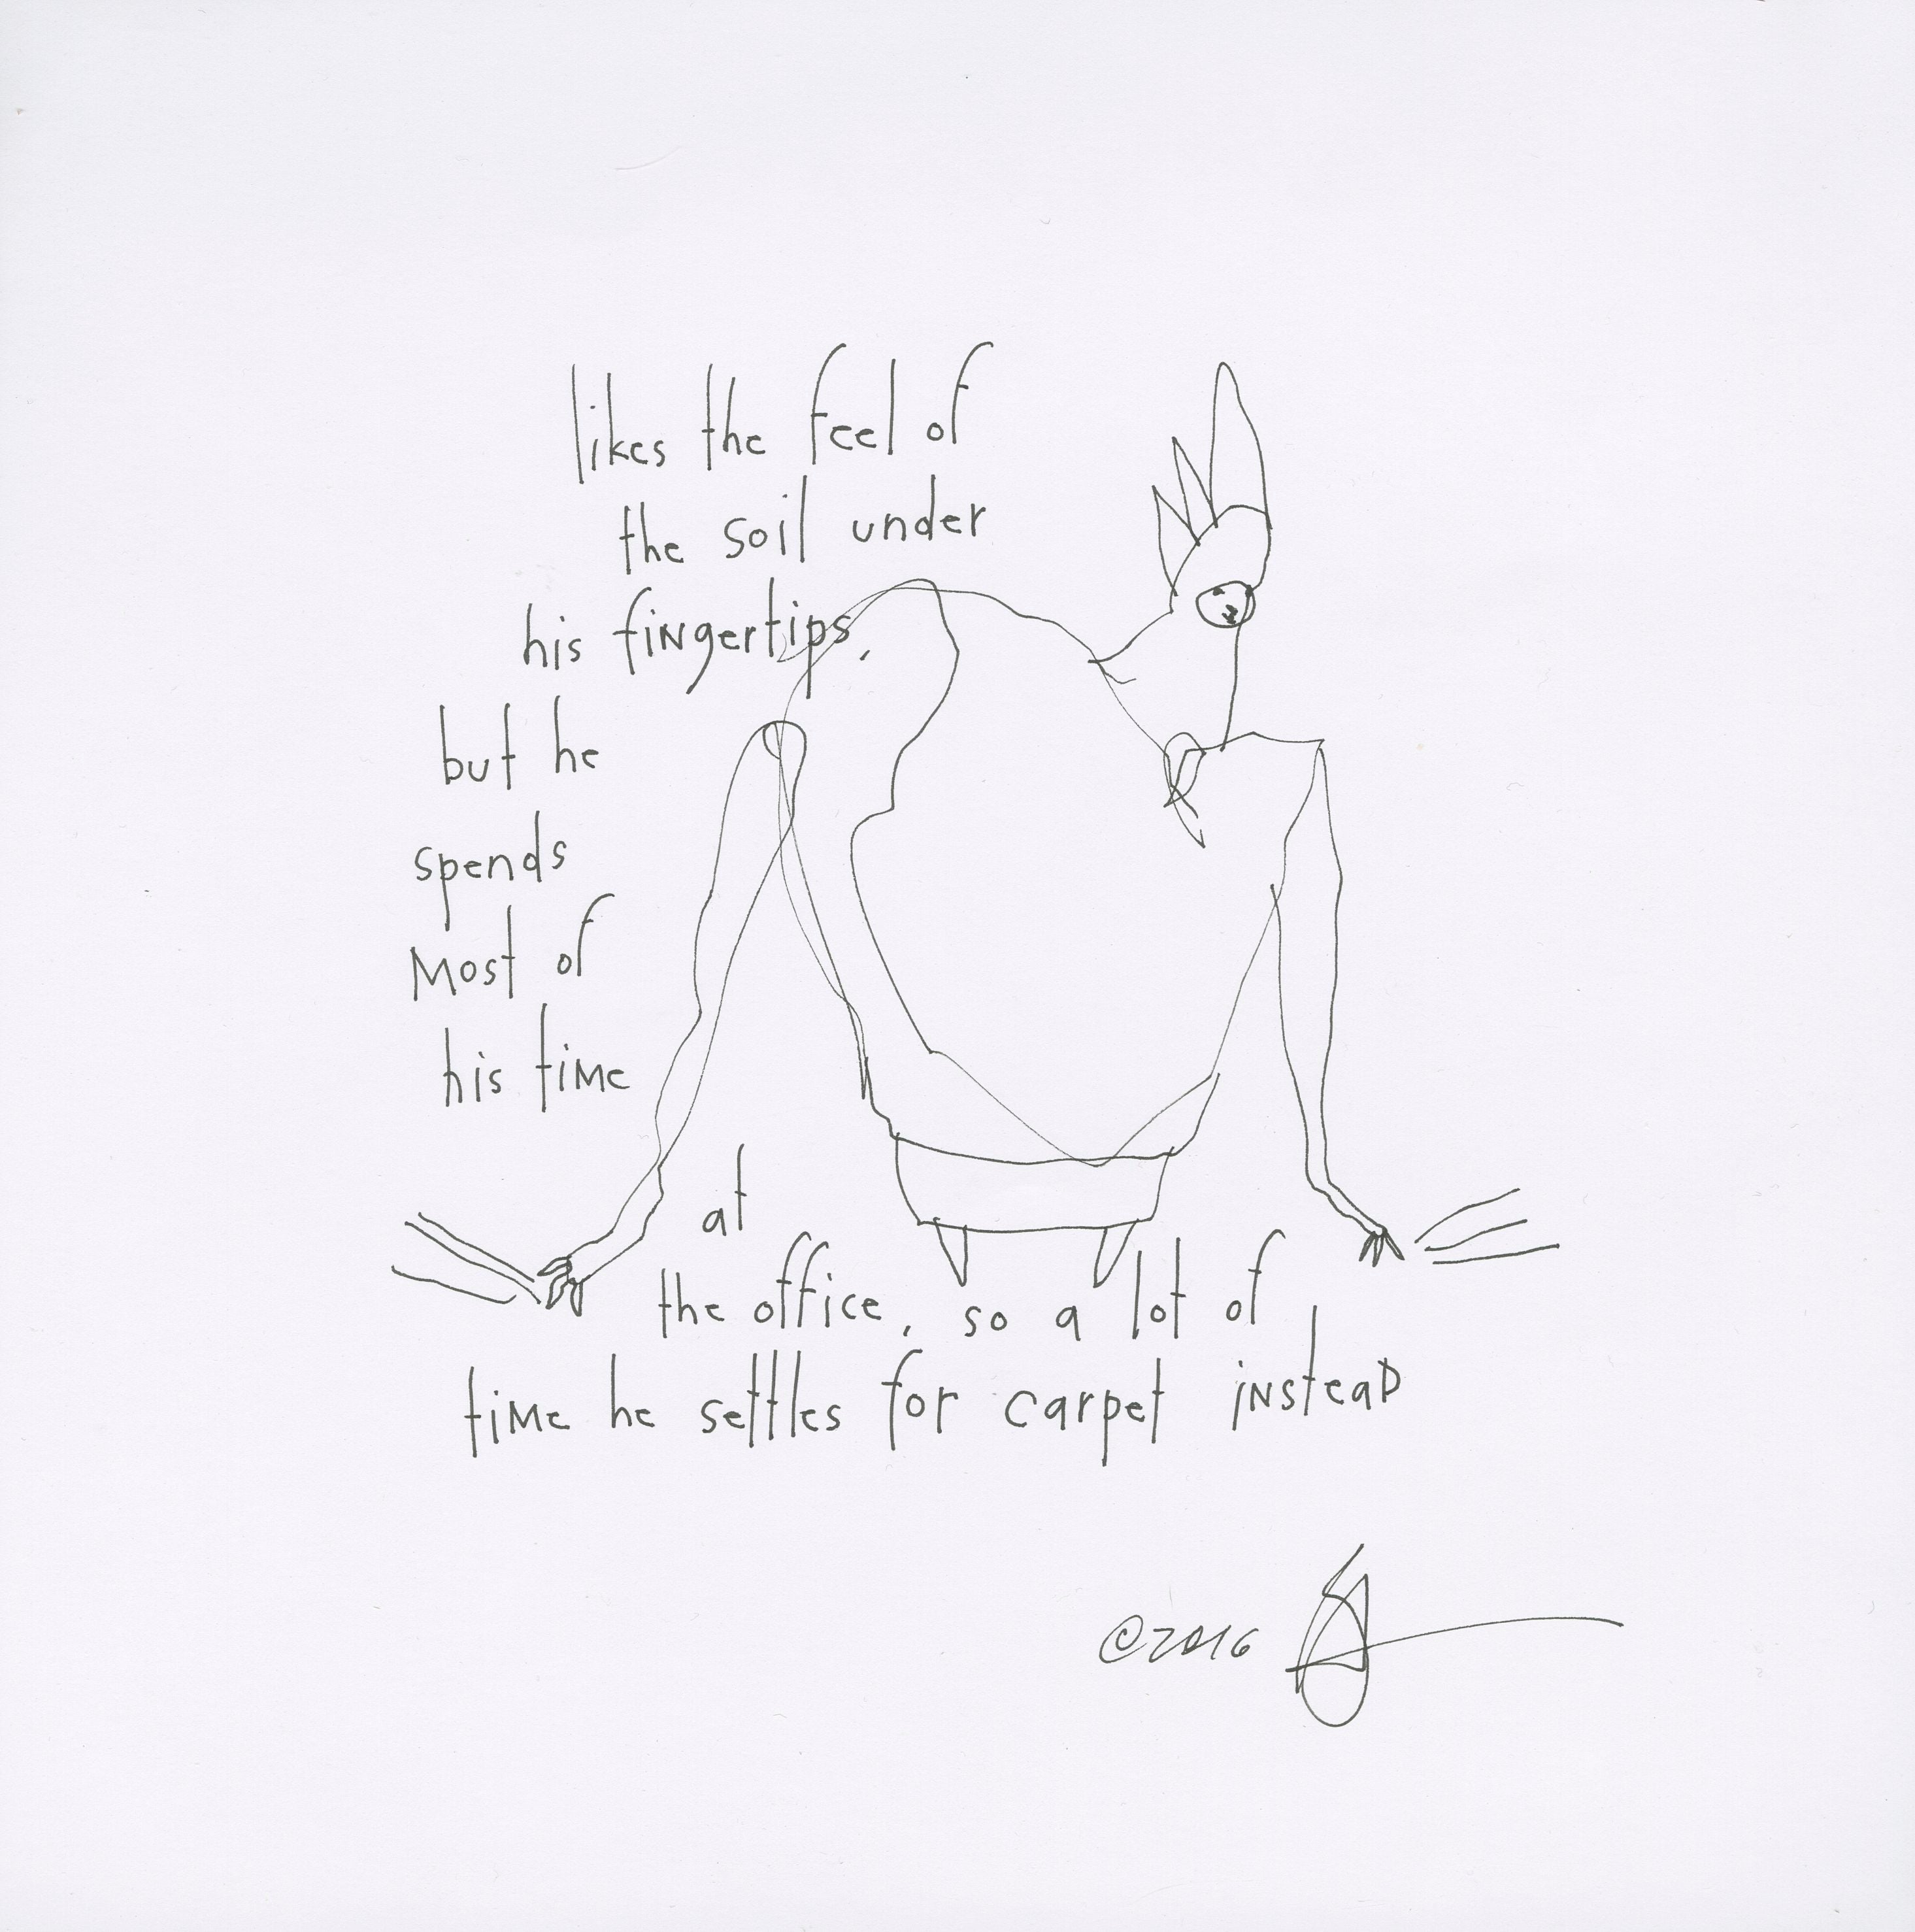 likes the feel of
the soil under
his fingertips,
but he
spends
Most of
his time
at
the office, so a lot of
time he settles for carpet instead
©2016